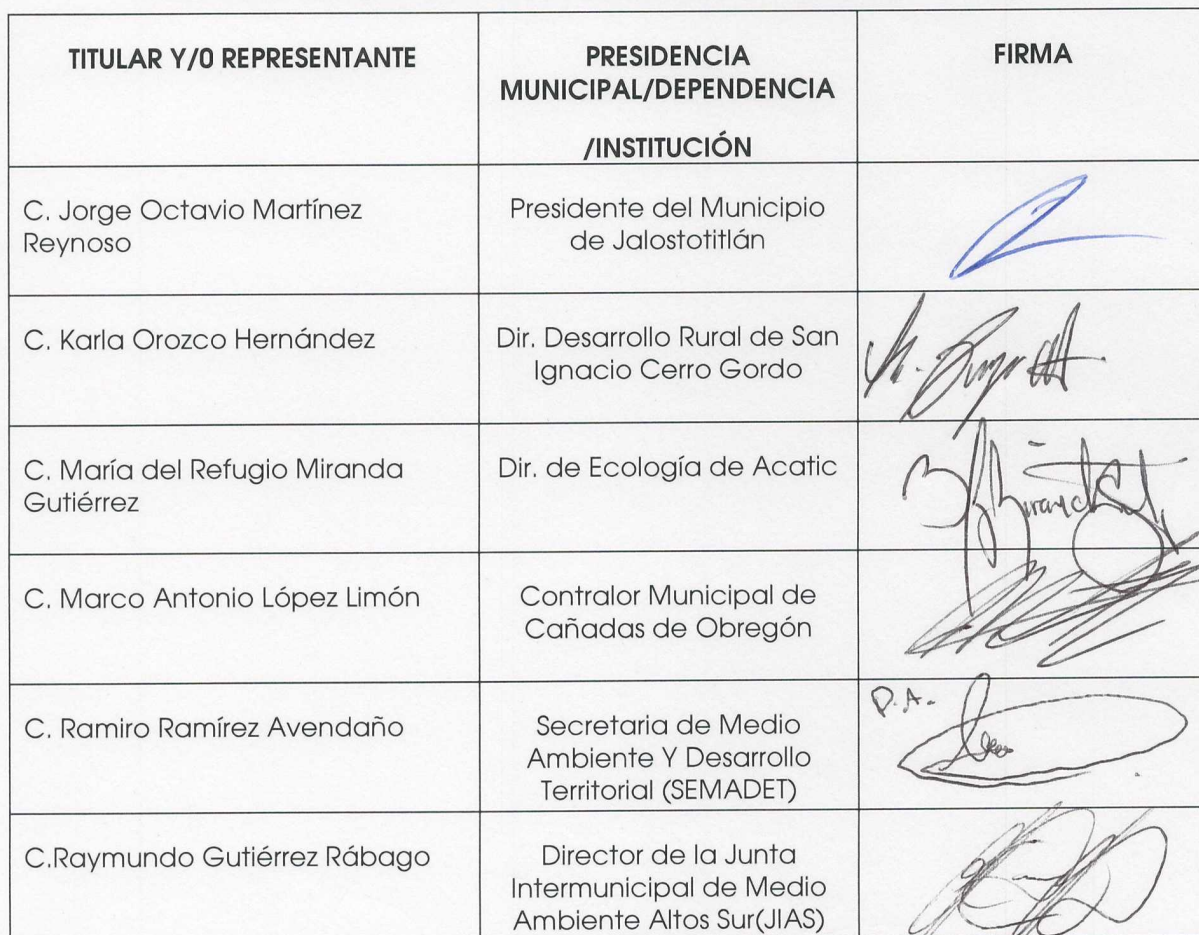 TITULAR Y/0 REPRESENTANTE
PRESIDENCIA
MUNICIPAL/DEPENDENCIA
/INSTITUCIÓN
FIRMA
C. Jorge Octavio Martínez
Reynoso
Presidente del Municipio
de Jalostotitlán
C. Karla Orozco Hernández
Dir. Desarrollo Rural de San
Ignacio Cerro Gordo
C. María del Refugio Miranda
Gutiérrez
Dir. de Ecología de Acatic
C. Marco Antonio López Limón
Contralor Municipal de
Cañadas de Obregón
C. Ramiro Ramírez Avendaño
Secretaria de Medio
Ambiente Y Desarrollo
Territorial (SEMADET)
P.A.
C.Raymundo Gutiérrez Rábago
Director de la Junta
Intermunicipal de Medio
Ambiente Altos Sur(JIAS)